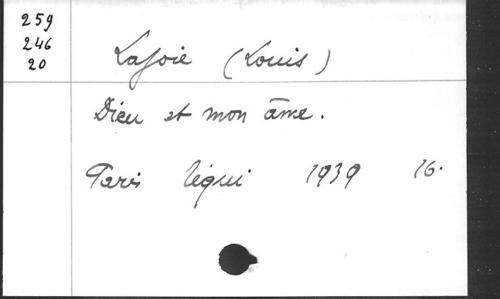 259
246
20
Lajoie (Louis)
Dieu et mon âme.
Paris Téqui 1939 16.